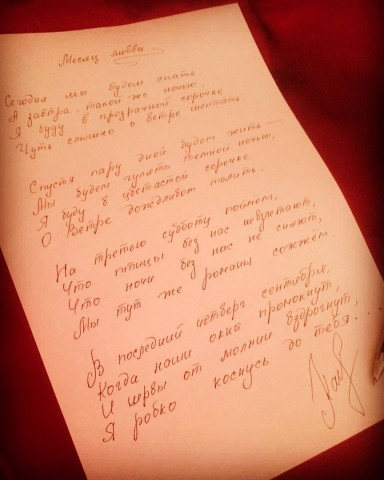 Месяц любви
Сегодня мы будем спать,
А завтра, такой же ночью,
Я буду в прозрачной сорочке
Чуть слышно о ветре шептать
Спустя пару дней будем жить—
Мы будем гулять темной ночью,
Я буду в цветастой сорочке
О ветре дождливом молить.
На третью субботу поймем,
Что птицы без нас не взлетают,
Что ночи без нас не сияют,
Мы тут же романы сожжём
В последний четверг сентября,
Когда наши окна промокнут,
И нервы от молнии вздрогнут,
Я робко коснусь до тебя....